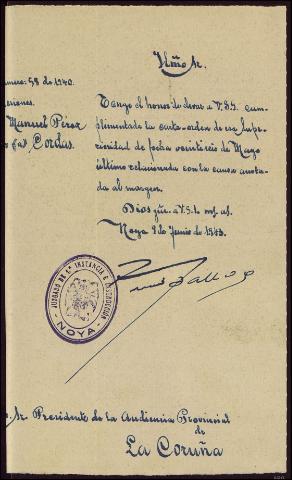 Iltmo Sr.
umero: 58 de 1940.
esiones.
Manuel Pérez
Cordas.
Tengo el honor de elevar a V.S.I. cum-
plimentada la carta-orden de esa Supe-
rioridad de fecha veintiseis de Mayo
último relacionada con la causa anota-
da al margen.
Dios gue a V.S.I. ms. as.
Noya 9 de Junio de 1943.
JUZGADO DE 1ª INSTANCIA E INSTRUCCIÓN
NOYA
Sr. Presidente de la Audiencia Provincial
de
La Coruña